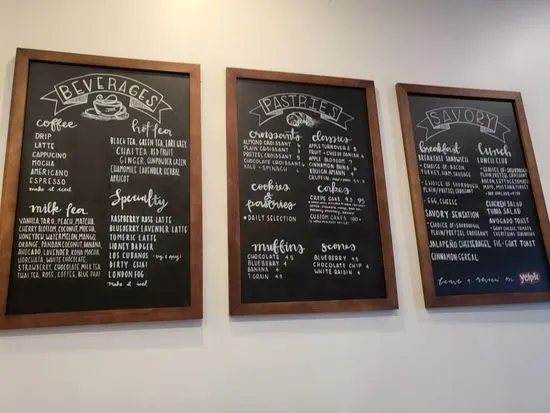 BEVERAGES
coffee
DRIP
LATTE
CAPPUCINO
MOCHA
AMERICANO
ESPRESSO
make it iced
hot tea
BLACK TEA, GREEN TEA, EARL GREY
CHAI TEA, RED FRUIT
GINGER, GUNPOWDER GREEN
CHAMOMILE LAVENDER HERBAL
APRICOT
milk tea
VANILLA, TARO, MACU, MATCHA,
CHERRY BLOSSOM, COCONUT, MOCHA,
HONEYDEW, WATERMELON, MANGO,
ORANGE, PANDAN COCONUT, BANANA,
AVOCADO, LAVENDER, KONA MOCHA,
HORCHATA, WHITE CHOCOLATE,
STRAWBERRY, CHOCOLATE, MILK TEA,
THAI TEA, ROSE, COFFEE, BLUE THAI
Specialty
RASPBERRY ROSE LATTE
BLUEBERRY LAVENDER LATTE
TUMERIC LATTE
HONEY BADGER
LOS CUBANOS
DIRTY CHAI
LONDON FOG
make it iced
PASTRIES
croissants
ALMOND CROISSANT
PLAIN CROISSANT
PRETZEL CROISSANT
CHOCOLATE CROISSANT
KALE - SPINACH
classics
APPLE TURNOVER
FRUIT + CHEESE DANISH
APPLE BLOSSOM
CINNAMON BUNS
cookies &
pastries
• DAILY SELECTION
cakes
CREPE CAKE 9.5
CUSTOM CAKES
muffins
CHOCOLATE 4
BLUEBERRY 4
BANANA 4
7 GRAIN 4.5
scones
BLUEBERRY 4
CHOCOLATE CHIP 4
WHITE RAISIN 4
SAVORY
breakfast
BREAKFAST SANDWICH
- CHOICE OF BACON,
TURKEY, HAM, SAUSAGE
- CHOICE OF SOURDOUGH,
PLAIN/PRETZEL CROISSANT
- EGG, CHEESE
SAVORY SENSATION
- CHOICE OF SOURDOUGH,
PLAIN/PRETZEL CROISSANT
JALAPEÑO CHEESE BAGEL
CINNAMON CEREAL
lunch
LUNCH CLUB
- CHOICE OF SOURDOUGH,
PLAIN/PRETZEL CROISSANT
CHICKEN SALAD
TUNA SALAD
AVOCADO TOAST
FIG + GOAT TOAST
leave a review on yelp